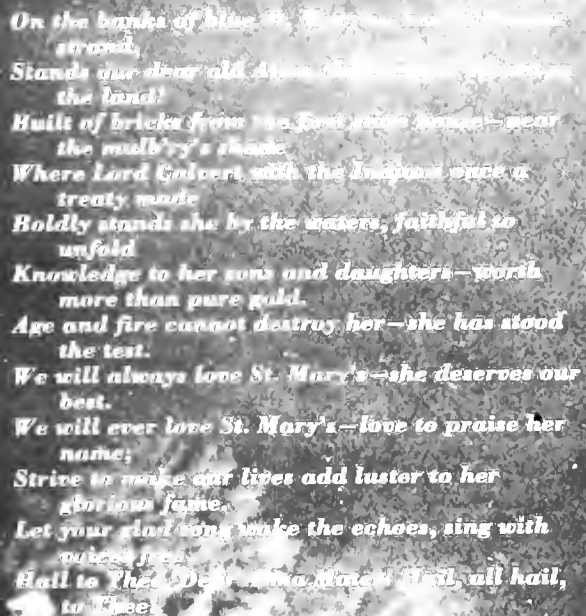 On the banks of blue St.
strand,
Stands our dear old Alma
the land!
Built of bricks from the first state house—near
the mulb'ry's shade
Where Lord Calvert with the Indians once a
treaty made
Boldly stands she by the waters, faithful to
unfold
Knowledge to her sons and daughters—worth
more than pure gold.
Age and fire cannot destroy her—she has stood
the test.
We will always love St. Mary's—she deserves our
best.
We will ever love St. Mary's—love to praise her
name;
Strive to make our lives add luster to her
glorious fame.
Let your glad song wake the echoes, sing with
Hail to Thee, Dear Alma Mater! Hail, all hail,
to Thee!